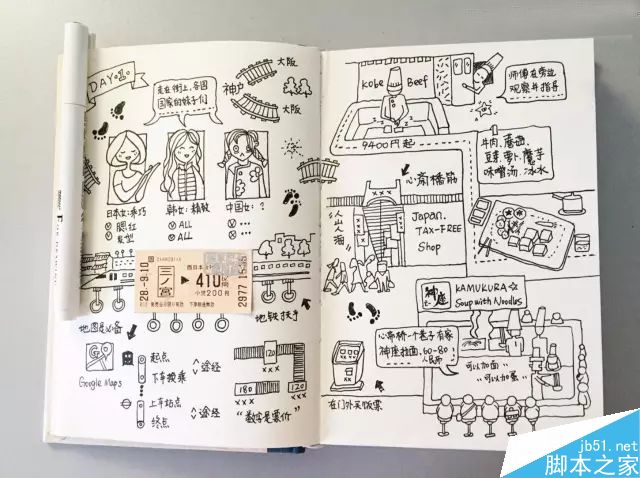 DAY 2
走在街上,各国
国家的妹子们
神户
大阪
大阪
日本女:乖巧
腮红
发型
韩女:精致
ALL
ALL
中国女:?
...
...
999
28.-9.10
三ノ宮
西日本
410円
小児200円
2977
地铁扶手
地图是必备
Google Maps
起点
下车换乘
途经
上车站点
终点
途经
120
180
120
×××
×××
"数字是票价"
Kobe Beef
师傅在旁边
观察并指导
9400円起
牛肉、蘑菇、
豆芽、萝卜、魔芋
味噌汤、冰水
心斎橋筋
人山人海
Japan.
TAX-FREE
Shop
神座
KAMUKURA☆
Soup with Noodles
心斋桥一个巷子有家
神座拉面,60-80
人民币
"可以加面"
"可以加蛋"
在门外买饭票
jb51.net
脚本之家